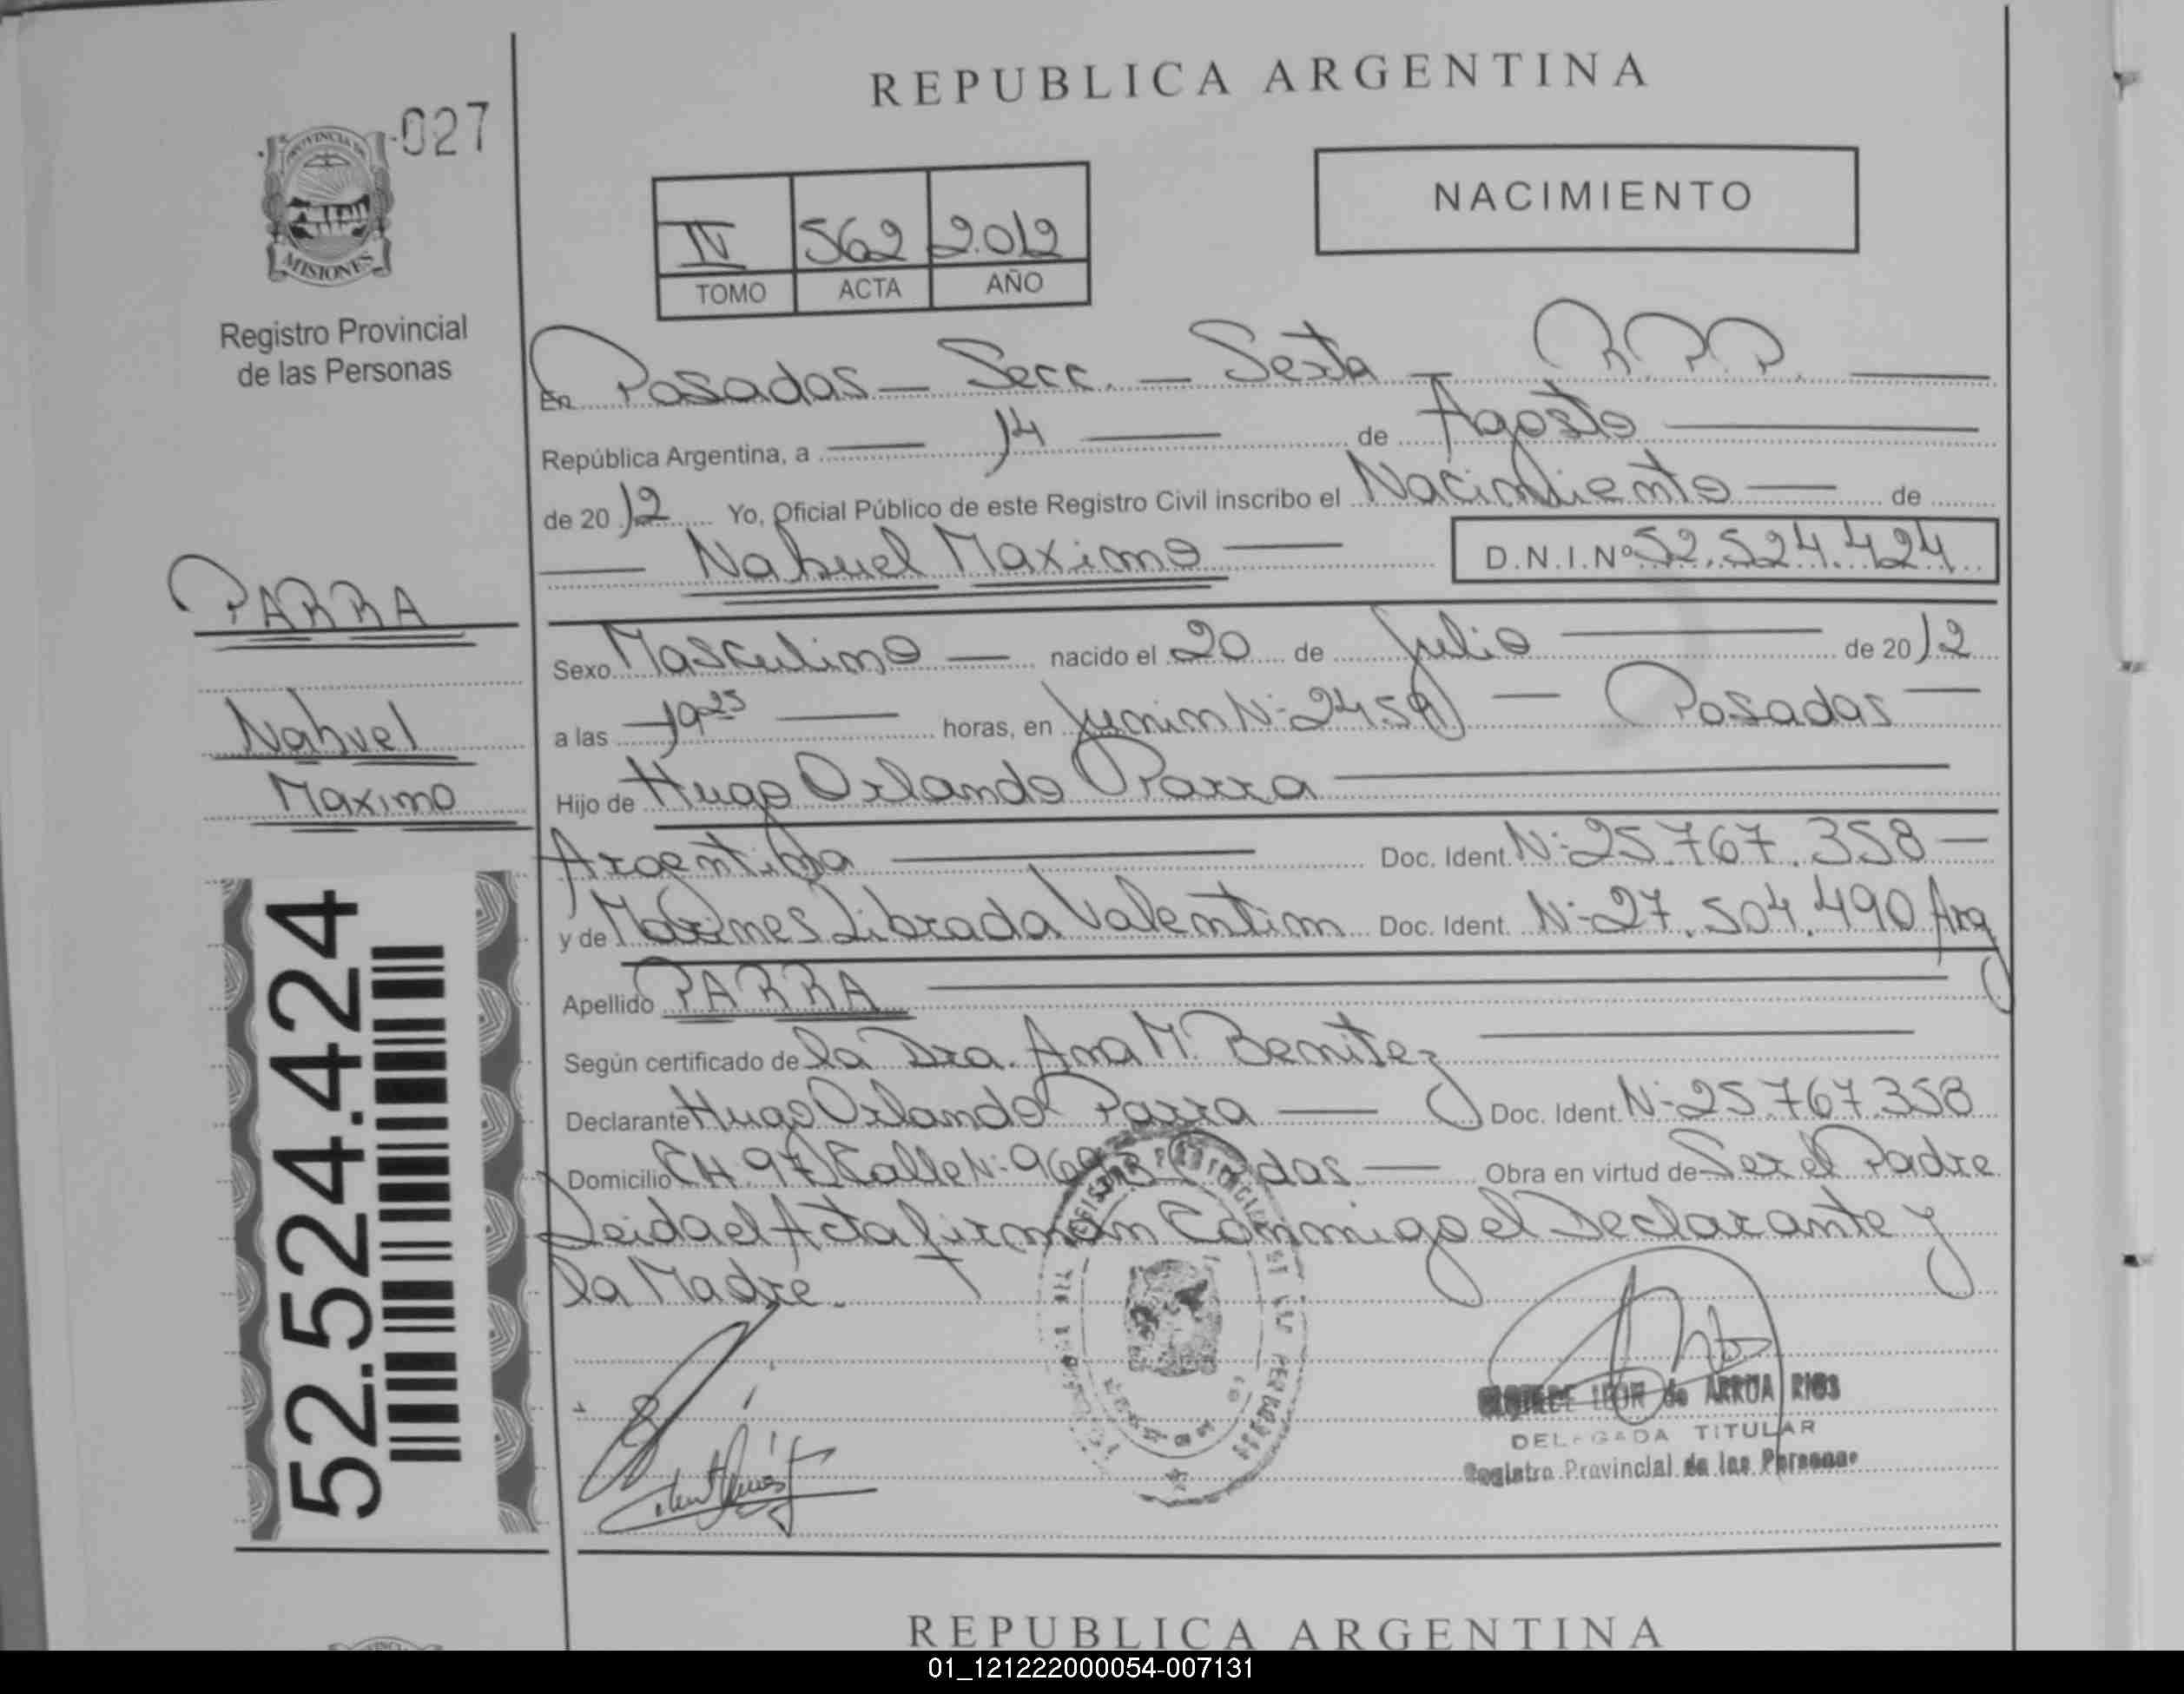 REPUBLICA ARGENTINA
027
PROVINCIA DE
MISIONES
Registro Provincial
de las Personas
NACIMIENTO
IV 562 2.012
TOMO ACTA AÑO
En Posadas — Secc. — Sexta — R.P.P.
República Argentina, a — 14 — de Agosto
de 2012 Yo, Oficial Público de este Registro Civil inscribo el Nacimiento — de
Nahuel Maximo — D.N.I.Nº 52.524.424
PARRA
Nahuel
Maximo
Sexo Masculino — nacido el 20 de Julio — de 2012
a las 19 25 — horas, en Junin Nº 2459 — Posadas —
Hijo de Hugo Orlando Parra
Argentina — Doc. Ident. Nº 25.767.358 —
y de Librada Valentim Doc. Ident. Nº 27.504.490 Arg
Apellido PARRA
Según certificado de la Dra. Ana M. Benitez
Declarante Hugo Orlando Parra — Doc. Ident. Nº 25.767.358
Domicilio CH. 97 Calle Nº — Obra en virtud de Ser el Padre
Leida el Acta firman Conmigo el Declarante y
la Madre.
52.524.424
LEOR de ARRUA RIOS
DELEGADA TITULAR
Registro Provincial de las Personas
REPUBLICA ARGENTINA
01_121222000054-007131